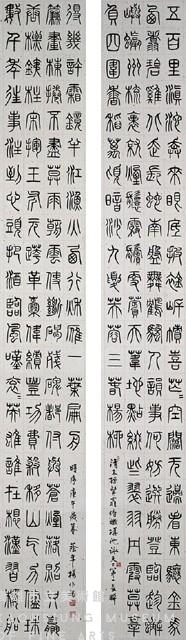 五百里滇池奔來眼底披襟岸幘喜茫茫空闊無邊看東驤神
駿西翥靈儀北走蜿蜒南翔縞素高人韻士何妨選勝登臨趁蟹
嶼螺洲梳裹就風鬟霧鬢更蘋天葦地點綴些翠羽丹霞莫孤
負四圍香稻萬頃晴沙九夏芙蓉三春楊柳
數千年往事注到心頭把酒臨虛嘆滾滾英雄誰在想漢習樓
船唐標鐵柱宋揮玉斧元跨革囊偉烈豐功費盡移山心力儘珠
簾畫棟卷不及暮雨朝雲便斷碣殘碑都付與蒼煙落照只贏
得幾杵疏鐘半江漁火兩行秋雁一枕清霜
時序庚午歲暮